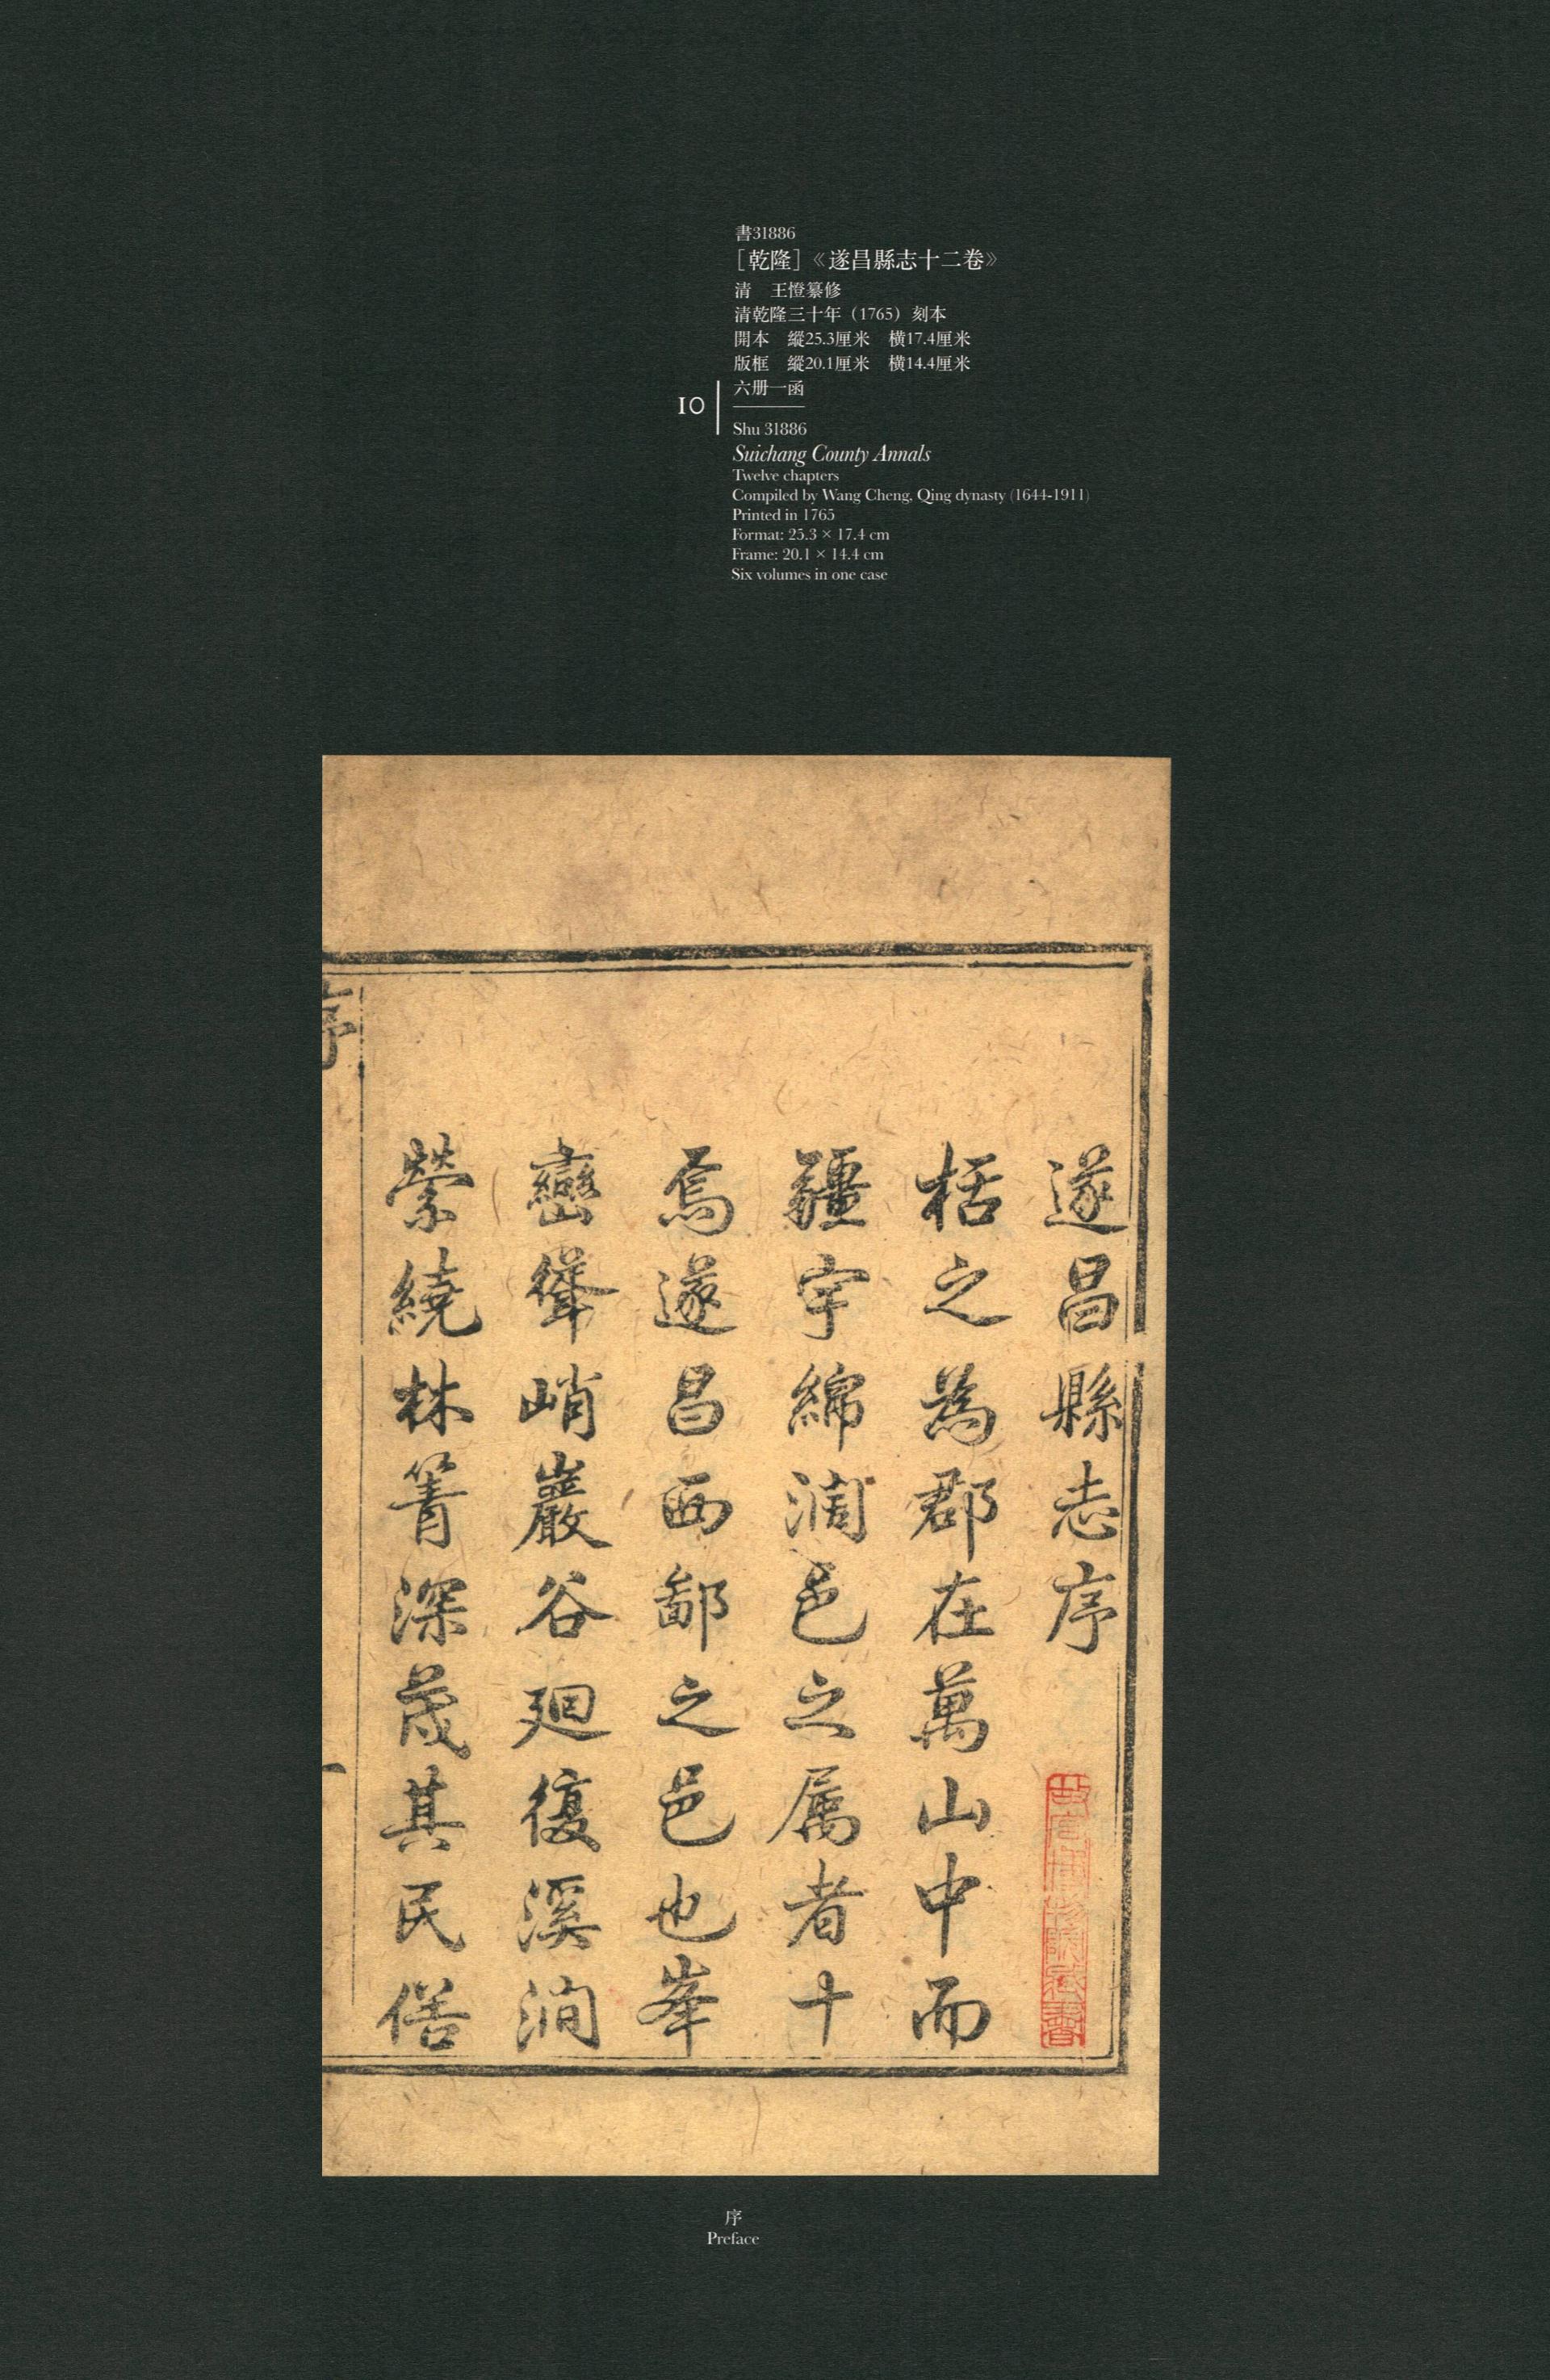 書31886
［乾隆］《遂昌縣志十二卷》
清　王憕纂修
清乾隆三十年（1765）刻本
開本　縱25.3厘米　橫17.4厘米
版框　縱20.1厘米　橫14.4厘米
六册一函
10
Shu 31886
Suichang County Annals
Twelve chapters
Compiled by Wang Cheng, Qing dynasty (1644-1911)
Printed in 1765
Format: 25.3 × 17.4 cm
Frame: 20.1 × 14.4 cm
Six volumes in one case
遂昌縣志序
故宫博物院藏書
栝之為郡在萬山中而
疆宇綿濶邑之属者十
焉遂昌西鄙之邑也峯
巒聳峭巖谷廻復溪澗
縈繞林箐深茂其民
序
一
序
Preface